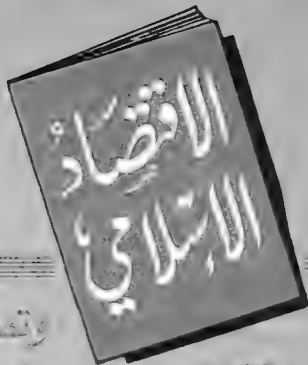 الاقتصاد
الإسلامي